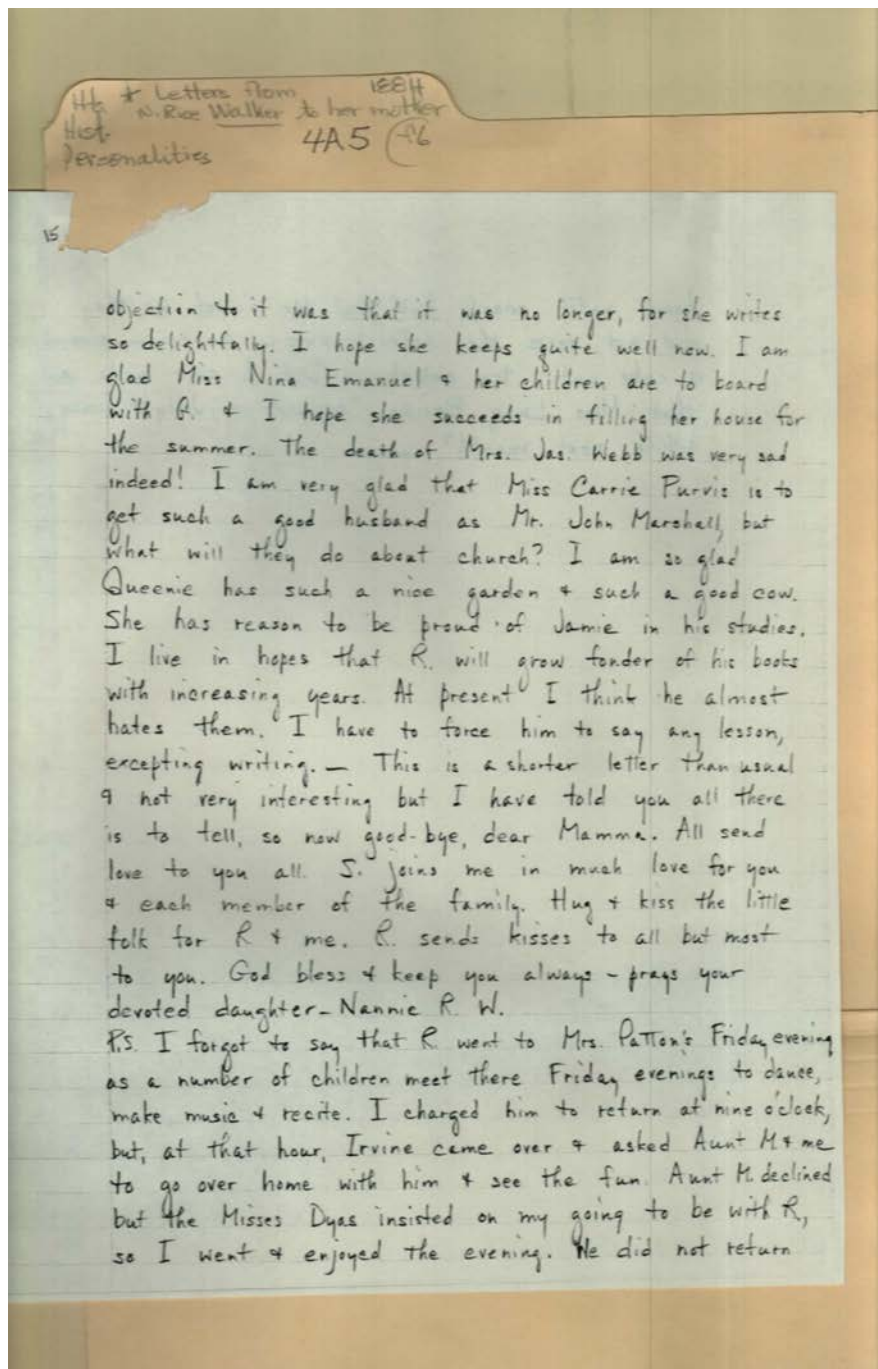 Ht. * Letters from 1884
N. Rice Walker to her mother
Hist.
4A5 f6
Personalities
15.
objection to it was that it was no longer, for she writes
so delightfully. I hope she keeps quite well now. I am
glad Miss Nina Emanuel & her children are to board
with Q. & I hope she succeeds in filling her house for
the summer. The death of Mrs. Jas. Webb was very sad
indeed! I am very glad that Miss Carrie Purvis is to
get such a good husband as Mr. John Marshall, but
what will they do about church? I am so glad
Queenie has such a nice garden & such a good cow.
She has reason to be proud of Jamie in his studies.
I live in hopes that R. will grow fonder of his books
with increasing years. At present I think he almost
hates them. I have to force him to say any lesson,
excepting writing. — This is a shorter letter than usual
& not very interesting but I have told you all there
is to tell, so now good-bye, dear Mamma. All send
love to you all. S. joins me in much love for you
& each member of the family. Hug & kiss the little
folk for R & me. R. sends kisses to all but most
to you. God bless & keep you always - prays your
devoted daughter - Nannie R. W.
P.S. I forgot to say that R. went to Mrs. Patton's Friday evening
as a number of children meet there Friday evenings to dance,
make music & recite. I charged him to return at nine o'clock,
but, at that hour, Irvine came over & asked Aunt M & me
to go over home with him & see the fun. Aunt M. declined
but the Misses Dyas insisted on my going to be with R,
so I went & enjoyed the evening. We did not return